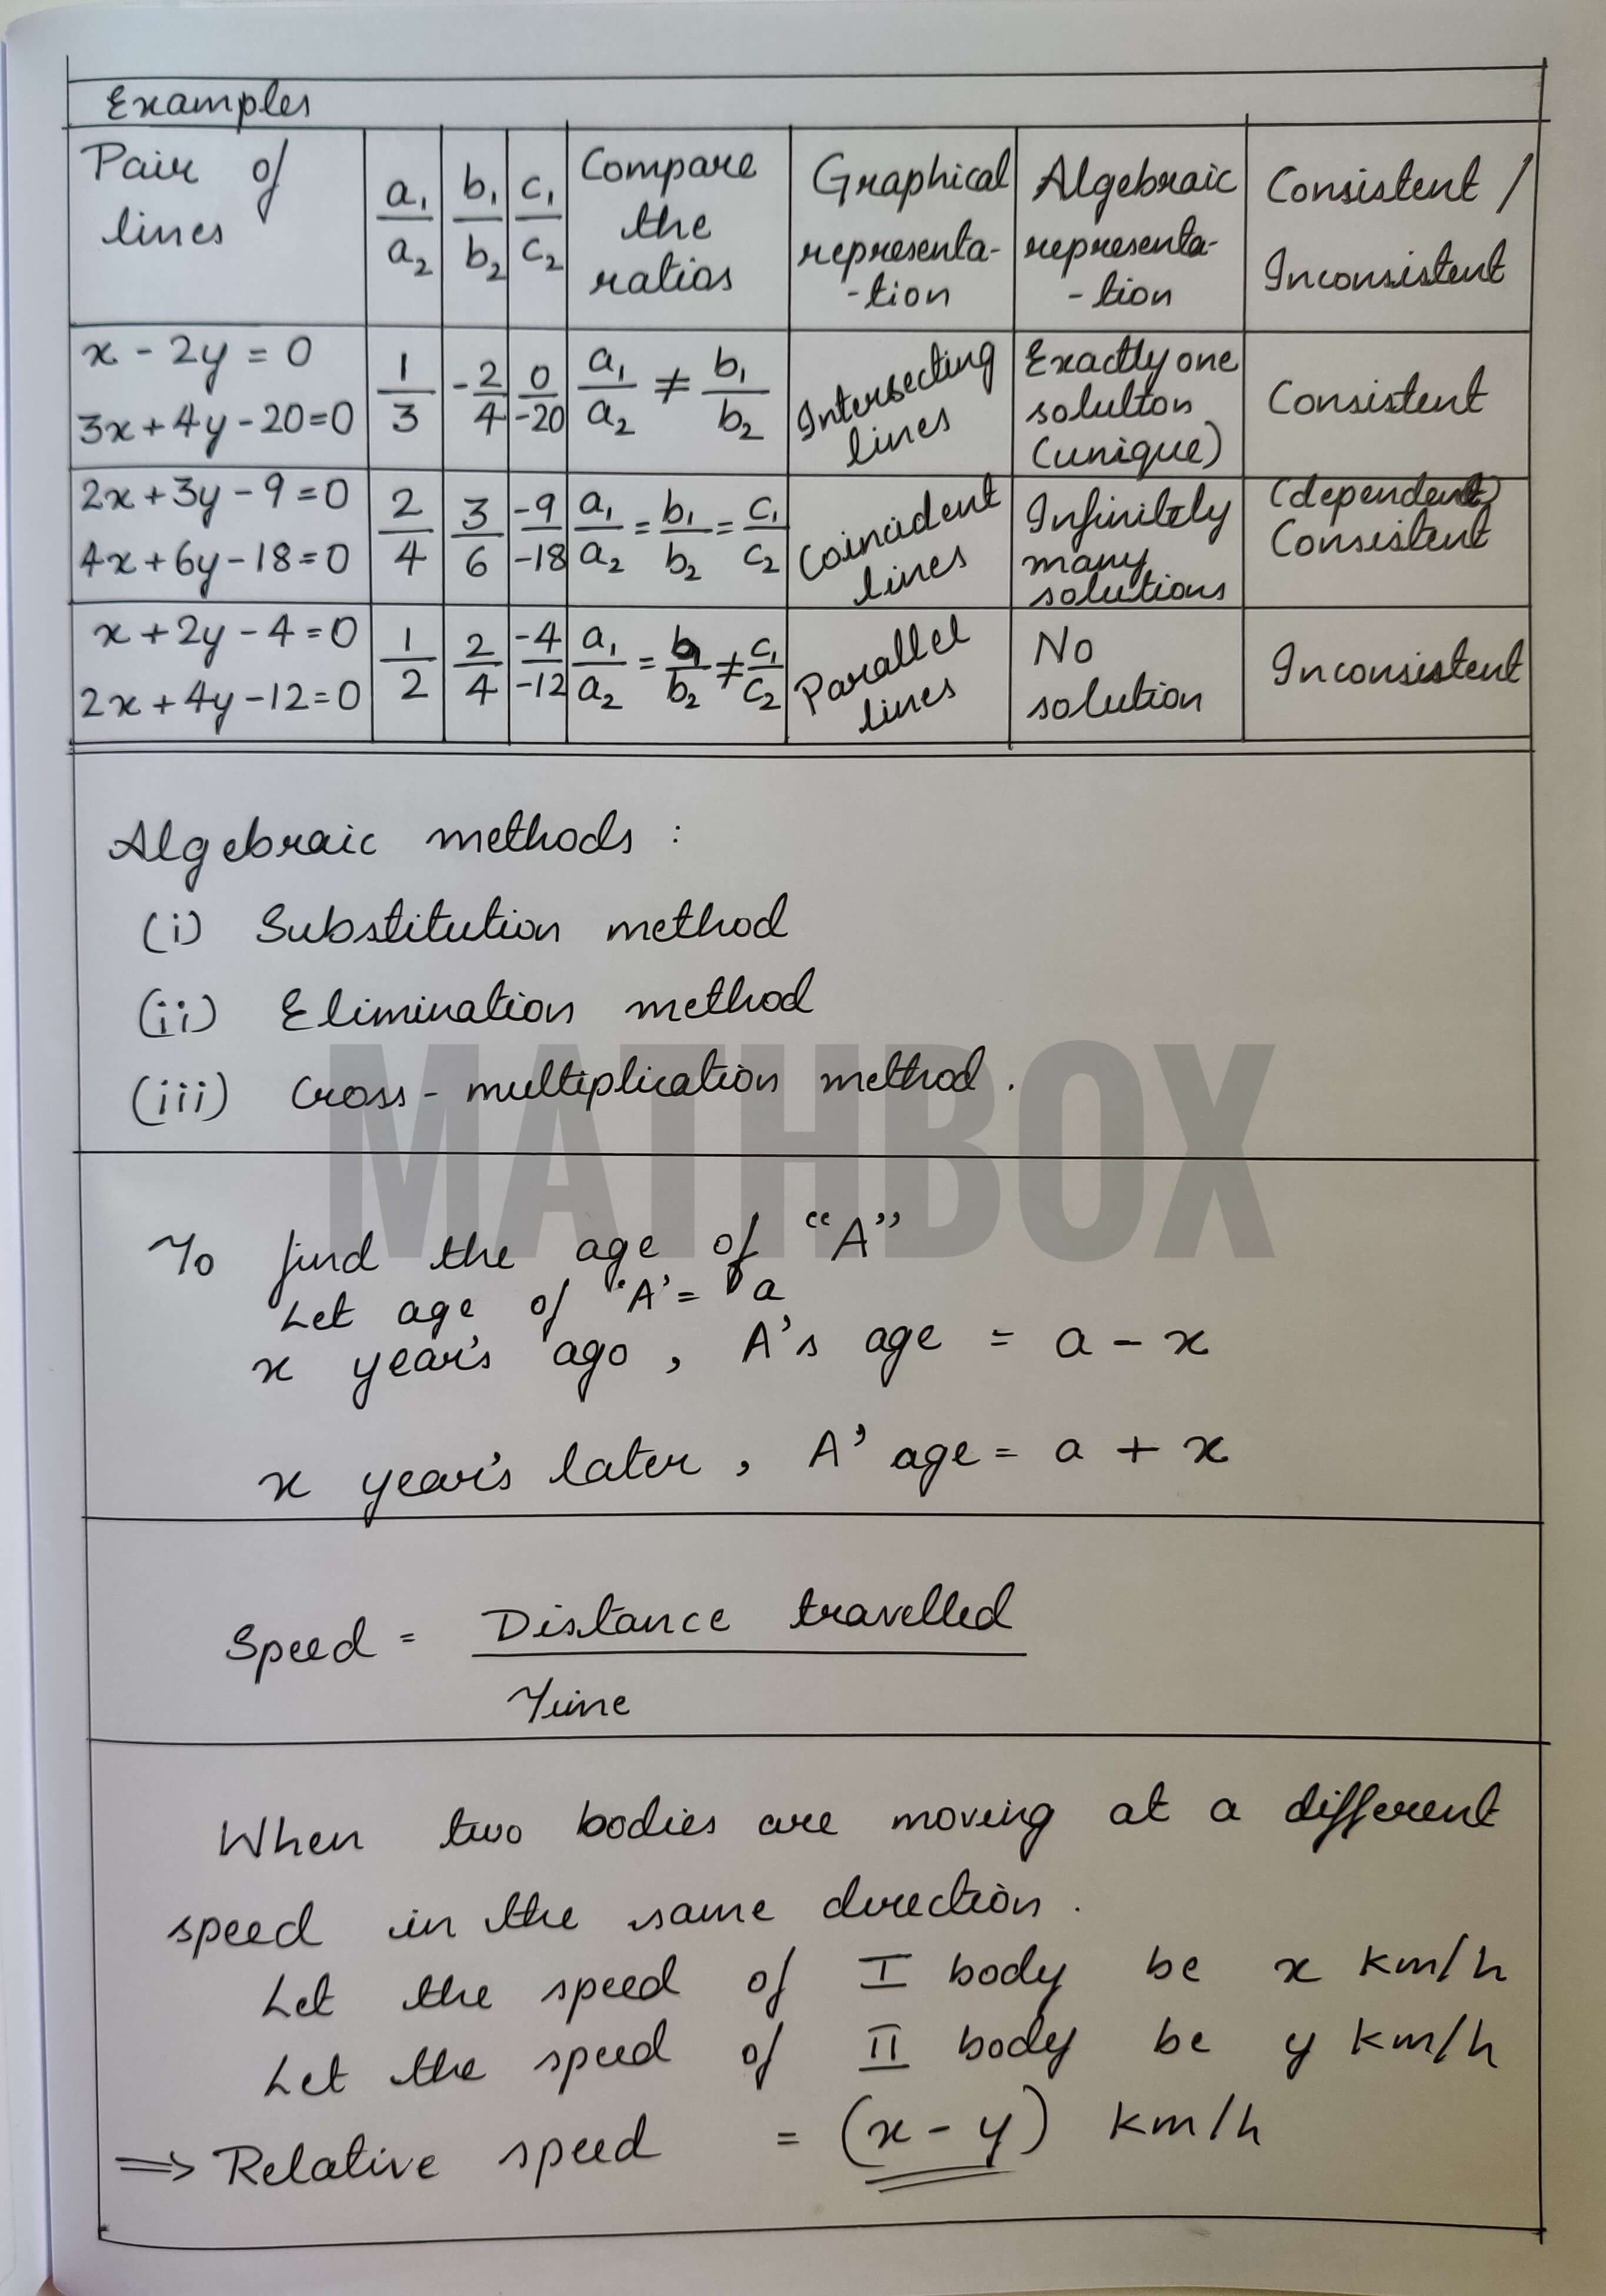 Examples
Pair of lines | a₁/a₂ | b₁/b₂ | c₁/c₂ | Compare the ratios | Graphical representa- -tion | Algebraic representa- -tion | Consistent / Inconsistent
x - 2y = 0 3x + 4y - 20 = 0 | 1/3 | -2/4 | 0/-20 | a₁/a₂ ≠ b₁/b₂ | Intersecting lines | Exactly one solution (unique) | Consistent
2x + 3y - 9 = 0 4x + 6y - 18 = 0 | 2/4 | 3/6 | -9/-18 | a₁/a₂ = b₁/b₂ = c₁/c₂ | Coincident lines | Infinitely many solutions | (dependent) Consistent
x + 2y - 4 = 0 2x + 4y - 12 = 0 | 1/2 | 2/4 | -4/-12 | a₁/a₂ = b₁/b₂ ≠ c₁/c₂ | Parallel lines | No solution | Inconsistent
Algebraic methods :
(i) Substitution method
(ii) Elimination method
(iii) Cross-multiplication method.
MATHBOX
To find the age of "A"
Let age of 'A' = a
x year's ago, A's age = a - x
x year's later, A' age = a + x
Speed = Distance travelled / Time
When two bodies are moving at a different
speed in the same direction.
Let the speed of I body be x km/h
Let the speed of II body be y km/h
⇒ Relative speed = (x - y) km/h